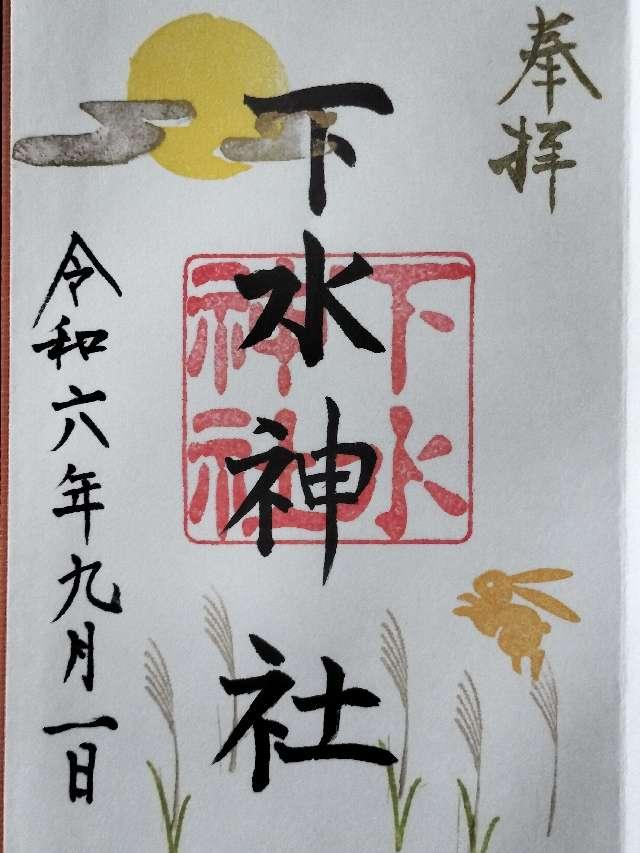 奉拝
下水神社
下水
神社
令和六年九月一日